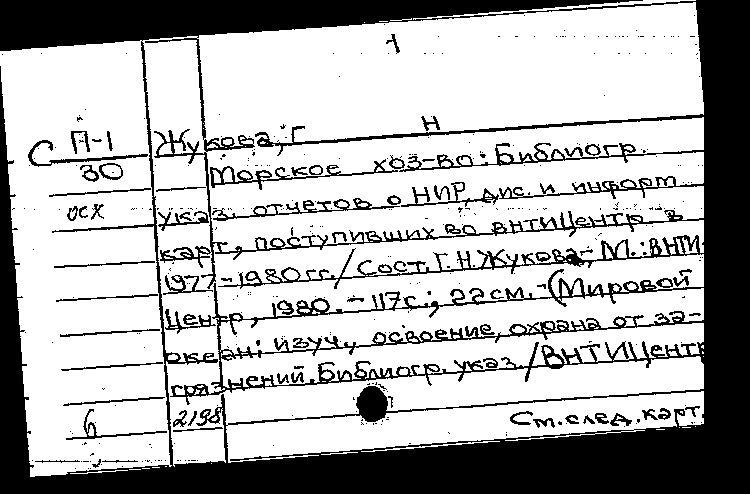 1
С П-1 Жукова, Г Н
30 Морское хоз-во: Библиогр.
осх указ. отчетов о НИР, дис. и информ
карт, поступивших во ВНТИЦентр в
1977-1980 гг. / Сост. Г.Н. Жукова - М.: ВНТИ-
Центр, 1980. - 117с.; 22см. - (Мировой
океан: изуч., освоение, охрана от за-
грязнений. Библиогр. указ. / ВНТИЦентр
6 2198 См. след. карт.